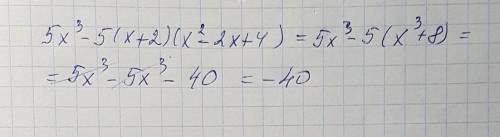 5x³-5(x+2)(x²-2x+4) = 5x³-5(x³+8) =
= 5x³-5x³-40 = -40